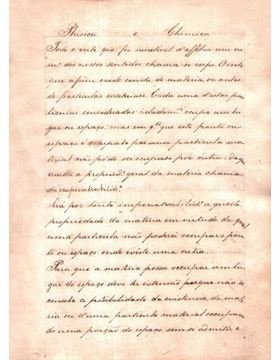 Physica e Chimica
Todo o ente que for susetivel d'affetar um ou
mais dos nossos sentidos chama-se corpo. O ente
que assim existe consta de materia, ou antes
de particulas materiaes. Cada uma d'estas par-
ticulas consideradas isoladamte. occupa um lu-
gar ou espaço, mas em qto. que este ponto ou
espaço é occupado por uma particula ma-
terial não póde ser occupado por outra: da
resulta a propriede. geral da materia chama-
da impenetrabilide.
Será por tanto impenetrabilide. a
propriedade da materia em virtude da qual
uma particula não poderá occupar o pon-
to ou espaço onde existe uma outra
Para que a materia possa occupar um lu-
gar do espaço deve ter extensão porque não se
conceba a possibilidade da existencia da ma-
ria ou d'uma particula material occupan-
do uma porção de espaço sem se admittir e